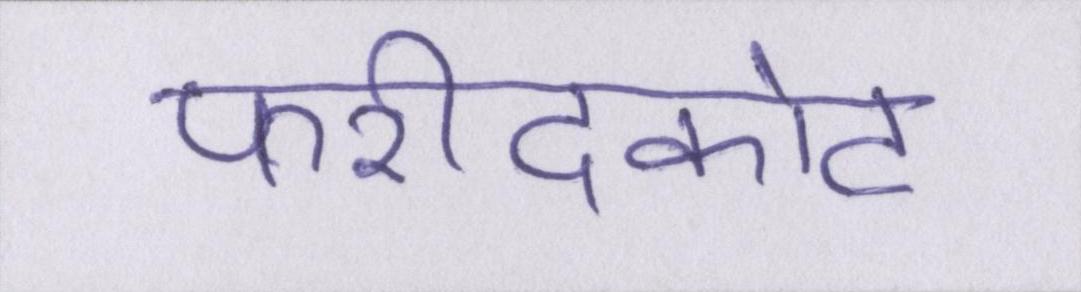 फरीदकोट